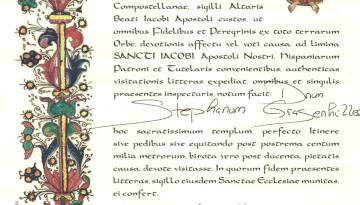 Compostellanae, sigilli Altaris
Beati Iacobi Apostoli custos, ut
omnibus Fidelibus et Peregrinis ex toto terrarum
Orbe, devotionis affectu vel voti causa, ad limina
SANCTI IACOBI, Apostoli Nostri, Hispaniarum
Patroni et Tutelaris convenientibus, authenticas
visitationis litteras expediat, omnibus et singulis
praesentes inspecturis, notum facit: Dnum
Stephanum
hoc sacratissimum templum, perfecto Itinere
sive pedibus sive equitando post postrema centum
milia metrorum, birota vero post ducenta, pietatis
causa, devote visitasse. In quorum fidem praesentes
litteras, sigillo eiusdem Sanctae Ecclesiae munitas,
ei confert.